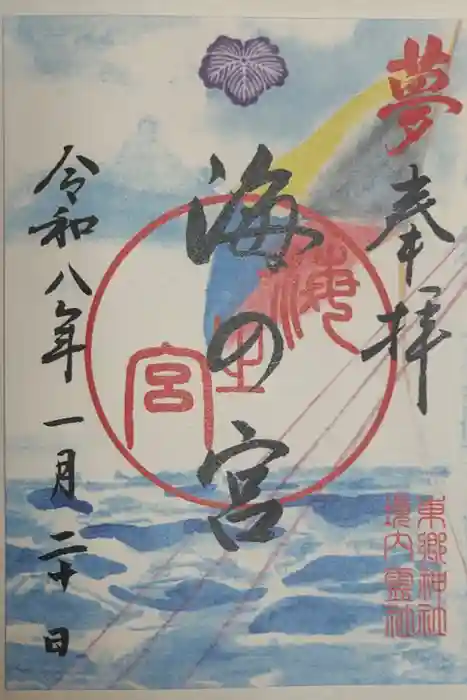 夢
奉拝
海の宮
海之宮
東郷神社
境内霊社
令和八年一月二十日